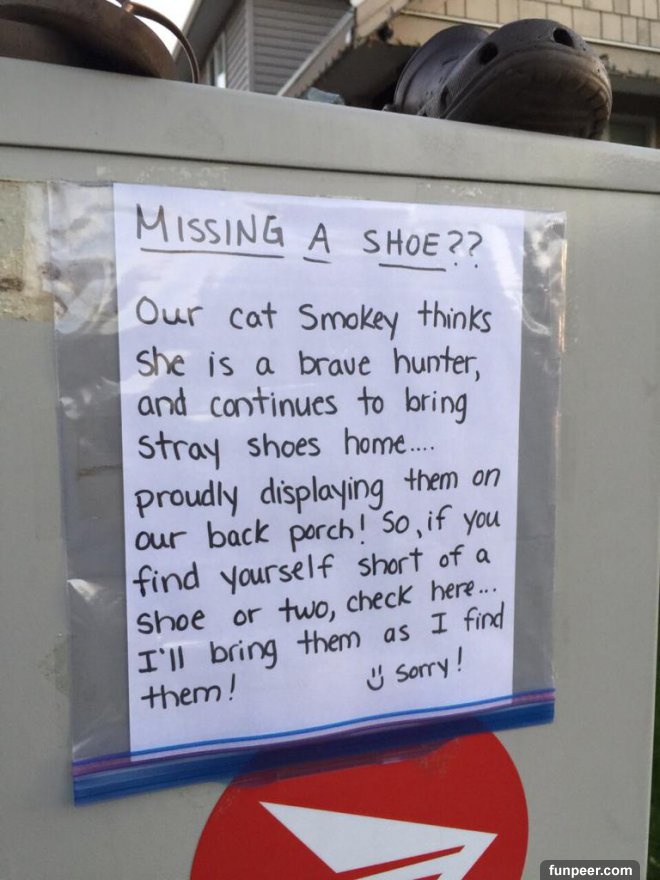 MISSING A SHOE??
Our cat Smokey thinks
she is a brave hunter,
and continues to bring
stray shoes home....
proudly displaying them on
our back porch! So, if you
find yourself short of a
shoe or two, check here...
I'll bring them as I find
them! Sorry!
funpeer.com